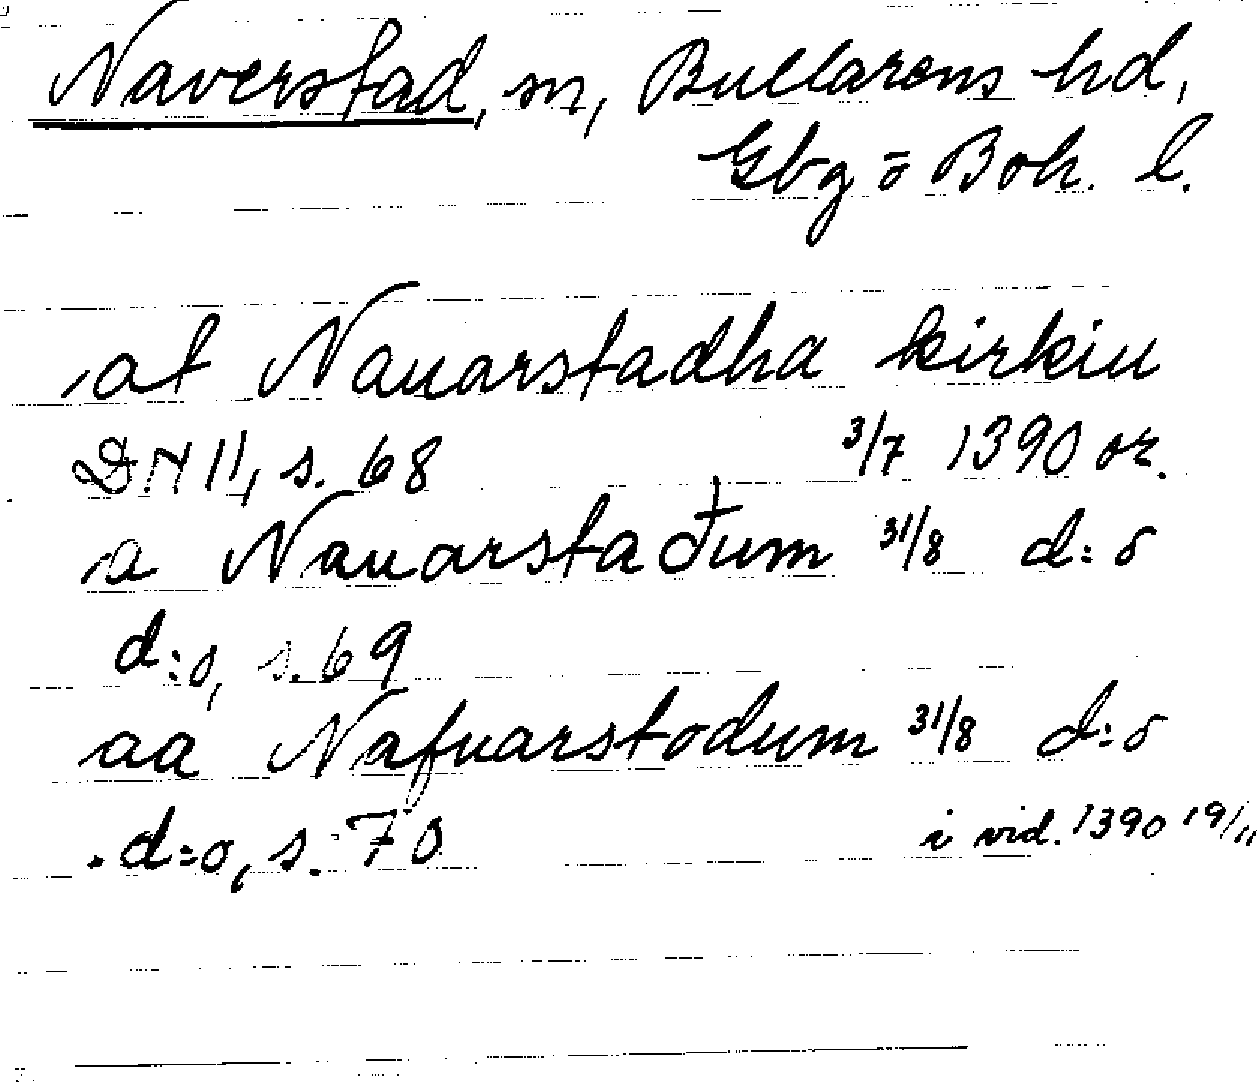 Naverstad, sn, Bullarens hd,
Gbg o Boh. l.
at Nauarstadha kirkiu
DN II, s. 68 3/7 1390 or.
a Nauarstađum 31/8 d:o
d:o, s. 69
aa Nafuarstodum 31/8 d:o
d:o, s. 70 i vid. 1390 19/11